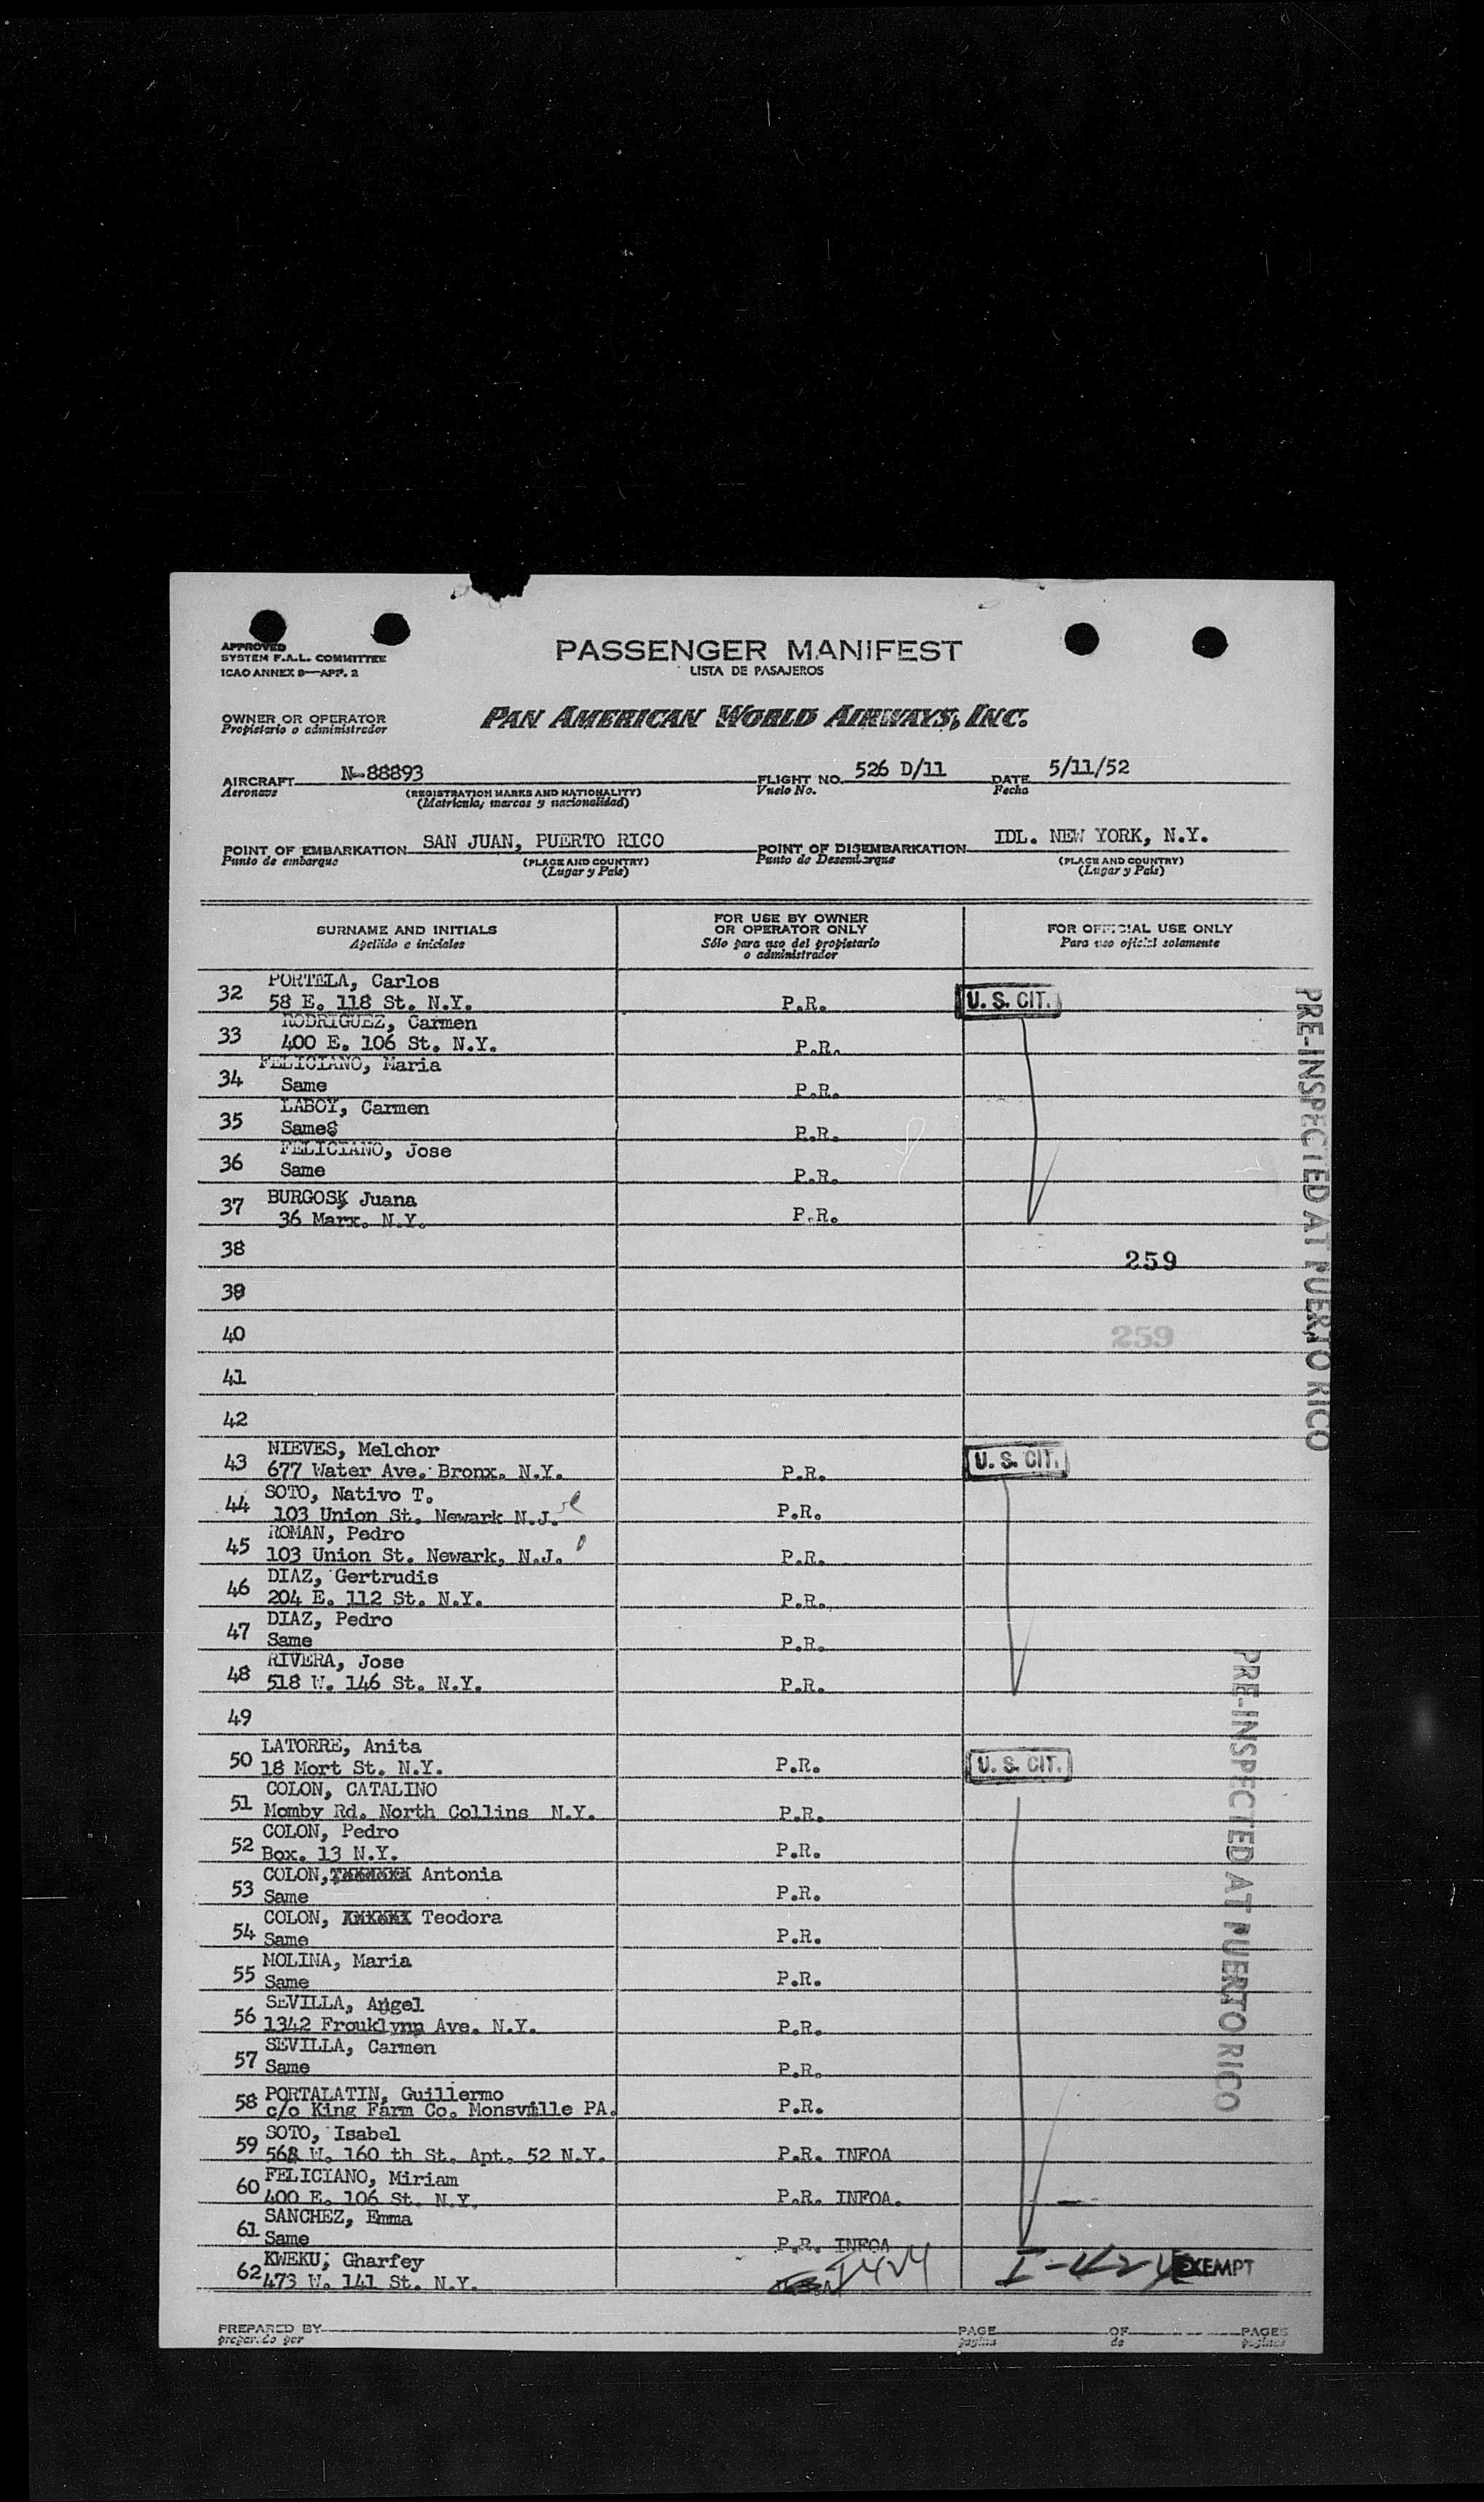 APPROVED
SYSTEM F.A.L. COMMITTEE
ICAO ANNEX 9—APP. 2
PASSENGER MANIFEST
LISTA DE PASAJEROS
OWNER OR OPERATOR
Propietario o administrador
PAN AMERICAN WORLD AIRWAYS, INC.
AIRCRAFT N-88893 FLIGHT NO. 526 D/11 DATE 5/11/52
Aeronave (REGISTRATION MARKS AND NATIONALITY) Vuelo No. Fecha
(Matrícula, marcas y nacionalidad)
POINT OF EMBARKATION SAN JUAN, PUERTO RICO POINT OF DISEMBARKATION IDL. NEW YORK, N.Y.
Punto de embarque (PLACE AND COUNTRY) Punto de Desembarque (PLACE AND COUNTRY)
(Lugar y País) (Lugar y País)
SURNAME AND INITIALS
Apellido e iniciales
FOR USE BY OWNER
OR OPERATOR ONLY
Sólo para uso del propietario
o administrador
FOR OFFICIAL USE ONLY
Para uso oficial solamente
32 PORTELA, Carlos
58 E. 118 St. N.Y. P.R. U. S. CIT.
33 RODRIGUEZ, Carmen
400 E. 106 St. N.Y. P.R.
34 FELICIANO, Maria
Same P.R.
35 LABOY, Carmen
Same P.R.
36 FELICIANO, Jose
Same P.R.
37 BURGOS, Juana
36 Marx. N.Y. P.R.
38 259
39
40 259
41
42
43 NIEVES, Melchor
677 Water Ave. Bronx. N.Y. P.R. U. S. CIT.
44 SOTO, Nativo T.
103 Union St. Newark N.J. P.R.
45 ROMAN, Pedro
103 Union St. Newark, N.J. P.R.
46 DIAZ, Gertrudis
204 E. 112 St. N.Y. P.R.
47 DIAZ, Pedro
Same P.R.
48 RIVERA, Jose
518 W. 146 St. N.Y. P.R.
49
50 LATORRE, Anita
18 Mort St. N.Y. P.R. U. S. CIT.
51 COLON, CATALINO
Momby Rd. North Collins N.Y. P.R.
52 COLON, Pedro
Box. 13 N.Y. P.R.
53 COLON, Antonia
Same P.R.
54 COLON, Teodora
Same P.R.
55 MOLINA, Maria
Same P.R.
56 SEVILLA, Angel
1342 Frouklynn Ave. N.Y. P.R.
57 SEVILLA, Carmen
Same P.R.
58 PORTALATIN, Guillermo
c/o King Farm Co. Monsville PA. P.R.
59 SOTO, Isabel
568 W. 160 th St. Apt. 52 N.Y. P.R. INFOA
60 FELICIANO, Miriam
400 E. 106 St. N.Y. P.R. INFOA.
61 SANCHEZ, Emma
Same P.R. INFOA
62 KWEKU, Gharfey
473 W. 141 St. N.Y. I424 I-424 EXEMPT
PRE-INSPECTED AT PUERTO RICO
PRE-INSPECTED AT PUERTO RICO
PREPARED BY PAGE OF PAGES
preparado por pagina de paginas